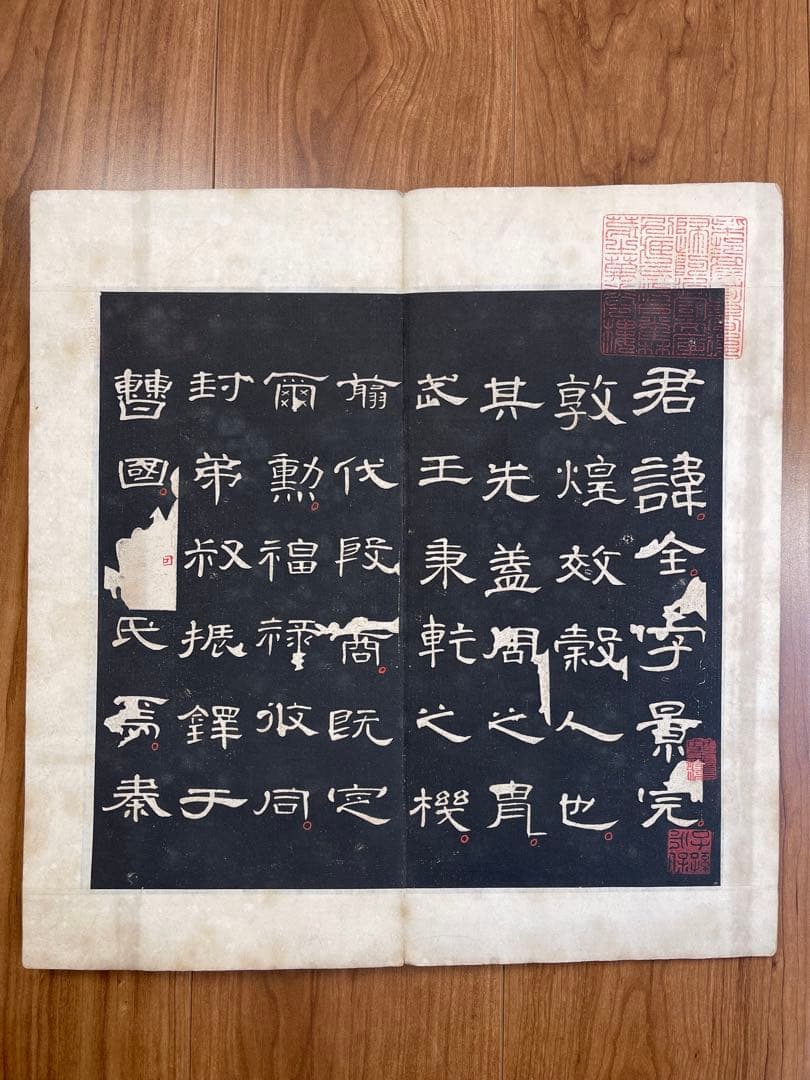 君諱全字景完
敦煌效穀人也
其先蓋周之胄
武王秉乾之機
翦伐殷商既定
爾勳福祿攸同
封弟叔振鐸于
曹國因氏焉秦
子孫永保